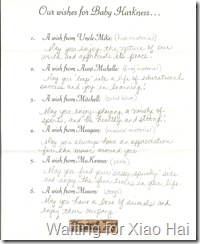 Our wishes for Baby Harkness...
1. A wish from Uncle Mike: (
May you enjoy the nature of our
world and appreciate its peace.
2. A wish from Aunt Michelle:
May you
a life of educational
success and joy in learning!
3. A wish from Mitchell:
May you enjoy playing a variety of
sports, and be healthy and strong!
4. A wish from Meagan:
May you always have an appreciation
for the music around you.
5. A wish from McKenna:
May you find your
side
and enjoy the
in your life.
6. A wish from Mason:
May you have a love of animals and
enjoy their company.
Waiting for Xiao Hai